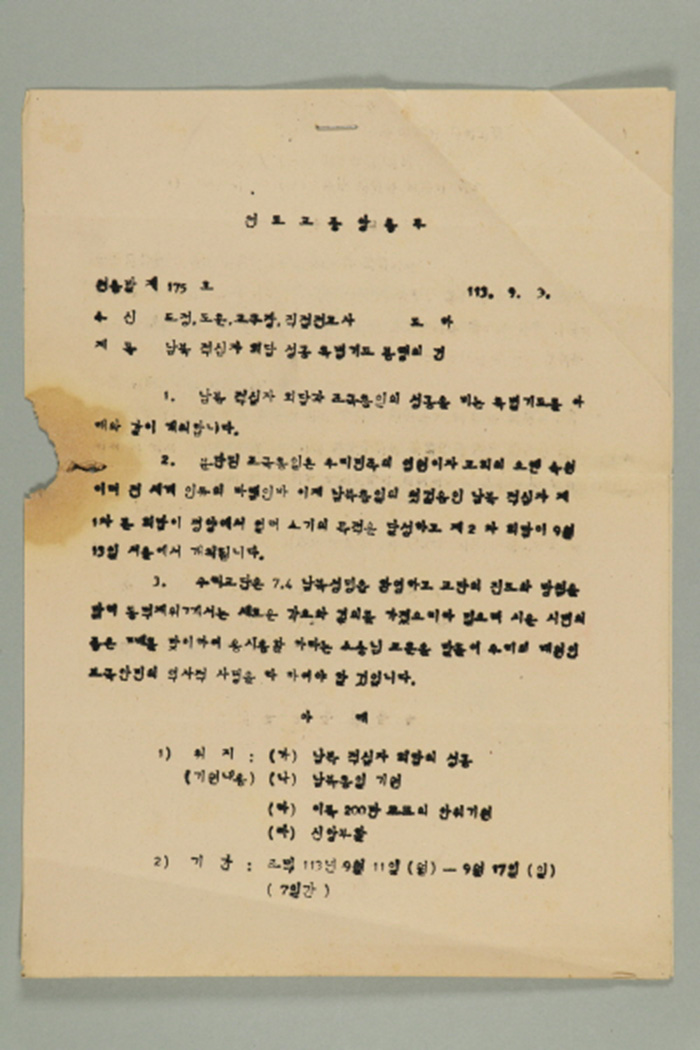 천도교중앙총부
천총발 제 175 호
113. 9. 3.
수 신 도정, 도훈, 교구장, 직접전교사 도 하
제 목 남북 적십자 회담 성공 특별기도 봉행의 건
1. 남북 적십자 회담과 조국통일의 성공을 비는 특별기도를 아
래와 같이 개최합니다.
2. 분단된 조국통일은 우리민족의 염원이자 교회의 오랜 숙원
이며 전 세계 인류의 바램인바 이제 남북통일의 첫걸음인 남북 적십자 제
1차 본 회담이 평양에서 열려 소기의 목적을 달성하고 제 2 차 회담이 9월
13일 서울에서 개최됩니다.
3. 우리교단은 7.4 남북성명을 환영하고 교단의 진로와 방향을
밝혀 동덕제위께서는 새로운 각오와 결의를 가졌으리라 믿으며
좋은 때를 맞이하여 용시용활 하라는 스승님 교훈을 받들어 우리의
역사적 사명을 다 하여야 할 것입니다.
아 래
1) 위 지 : (가) 남북 적십자 회담의 성공
(기원내용) (나) 남북통일 기원
(다) 이북 200만 교도의 안위기원
(라) 신앙부활
2) 기 간 : 포덕 113년 9월 11일 (월) — 9월 17일 (일)
( 7일간 )